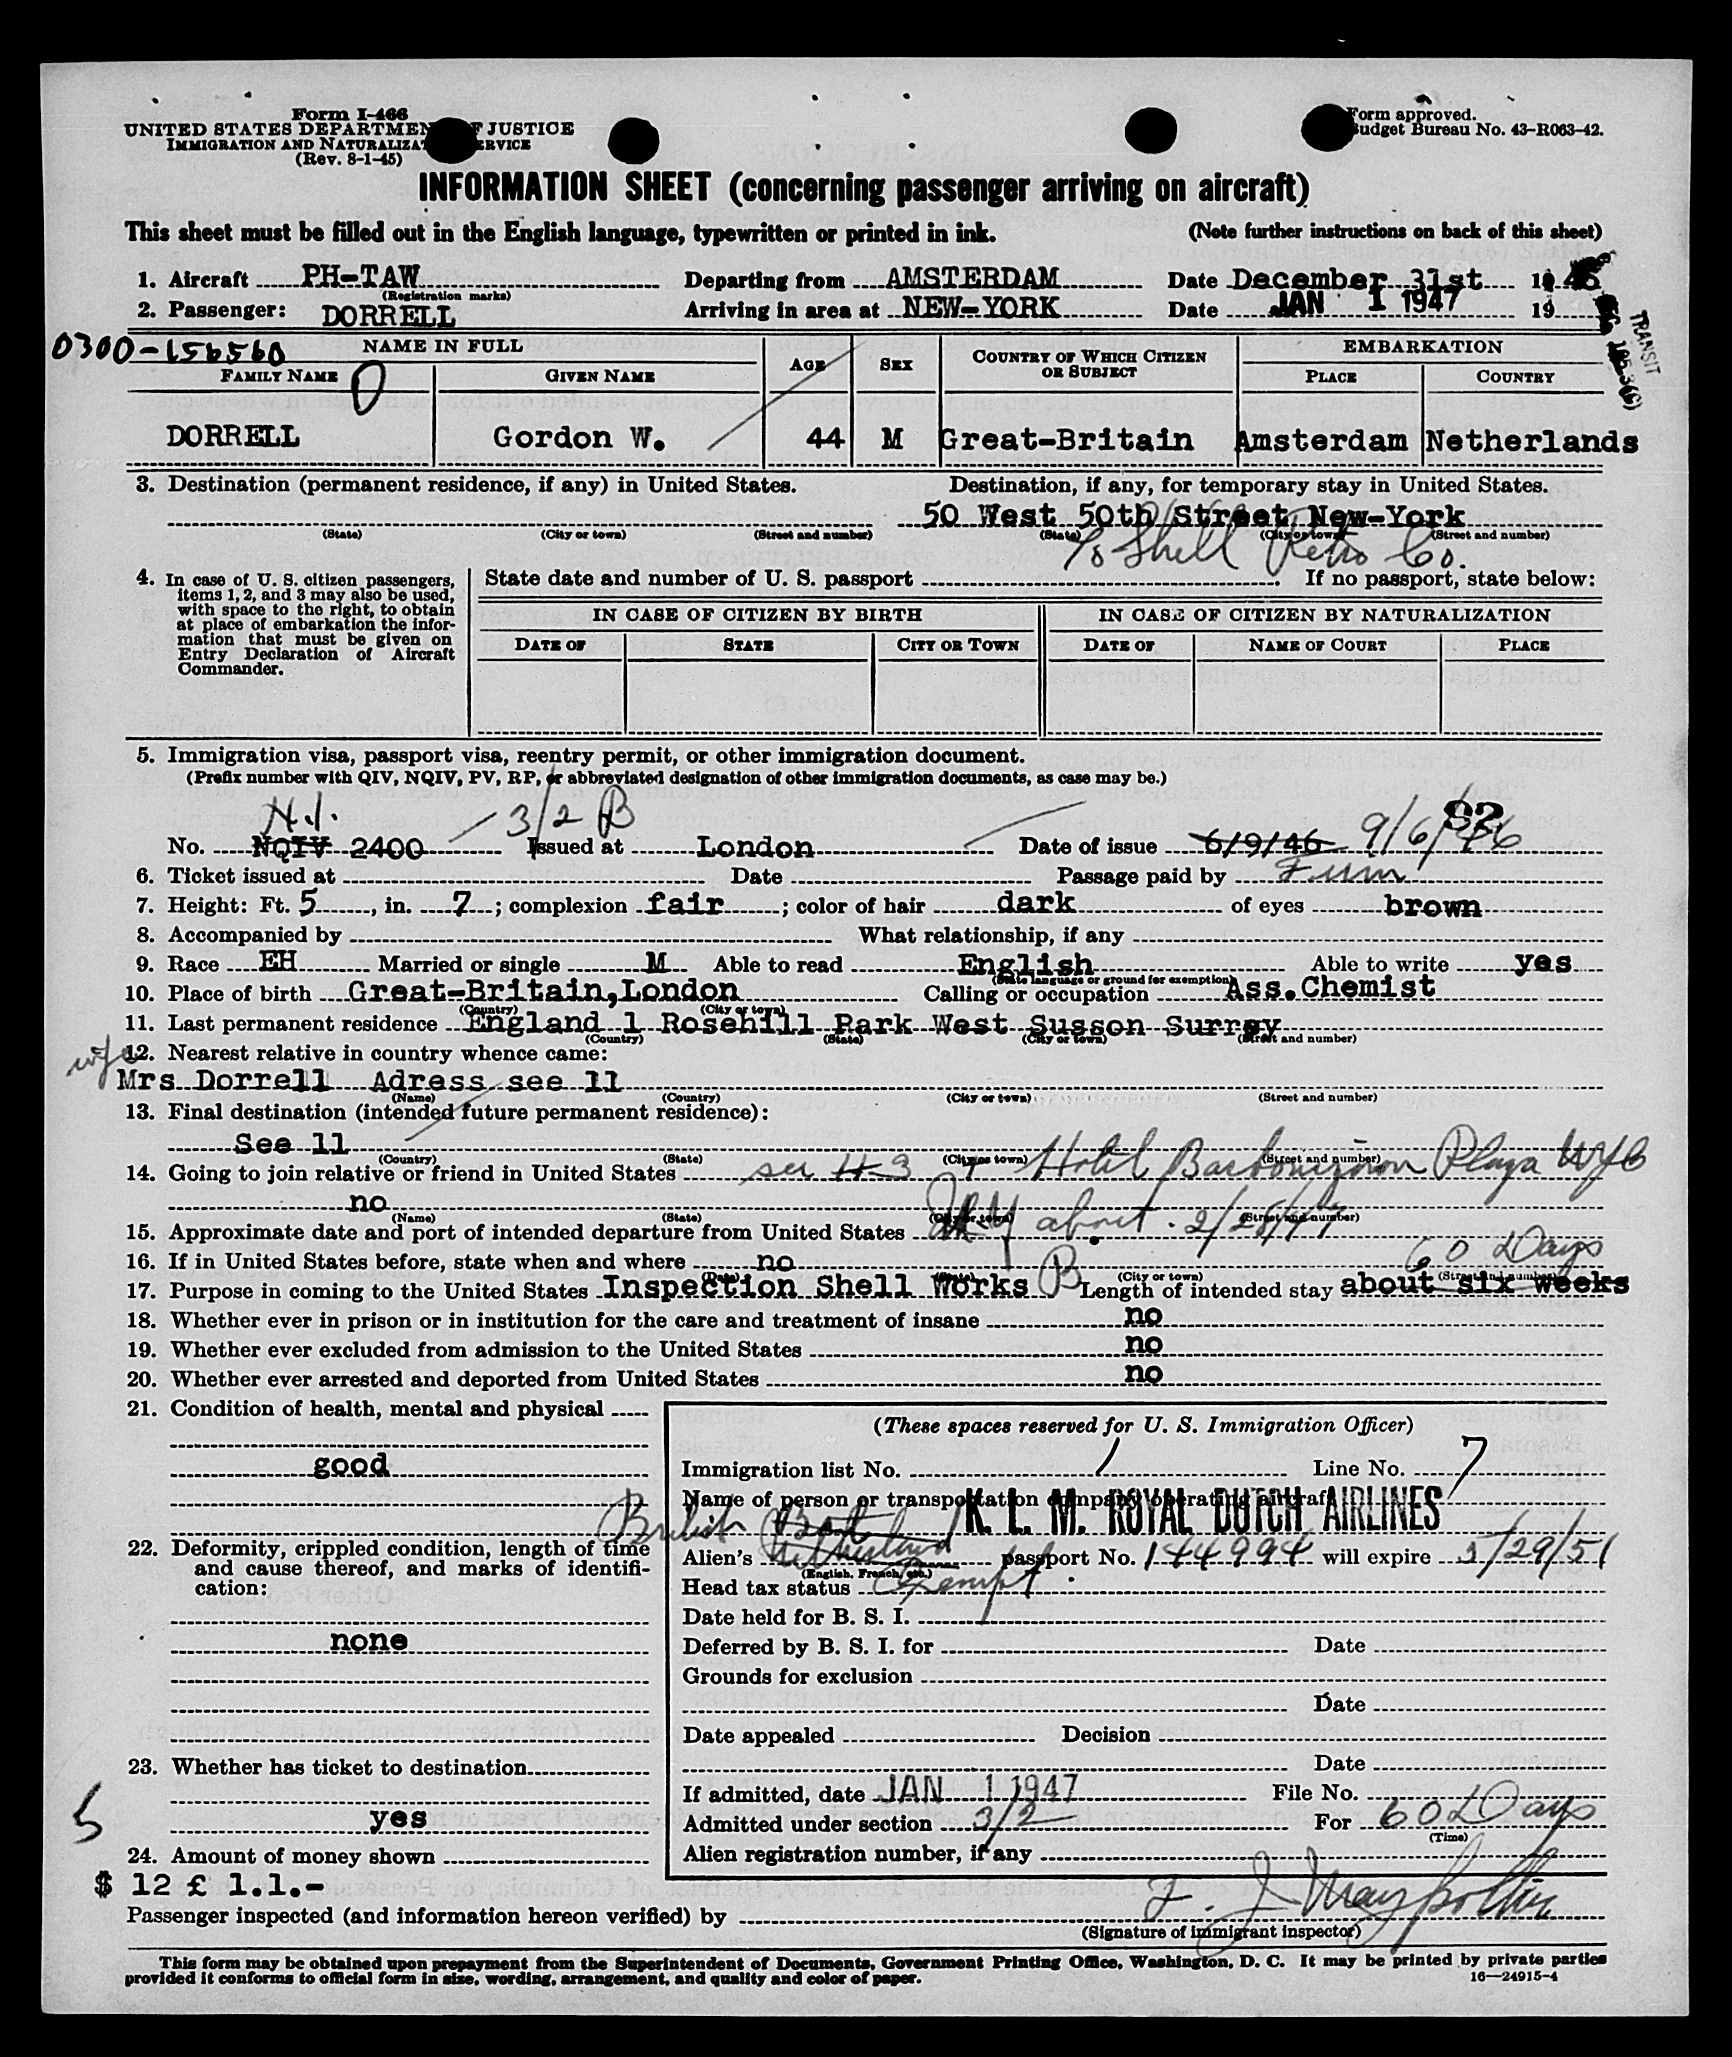 Form I-466
UNITED STATES DEPARTMENT OF JUSTICE
IMMIGRATION AND NATURALIZATION SERVICE
(Rev. 8-1-45)
Form approved.
Budget Bureau No. 43-R063-42.
INFORMATION SHEET (concerning passenger arriving on aircraft)
This sheet must be filled out in the English language, typewritten or printed in ink. (Note further instructions on back of this sheet)
1. Aircraft PH-TAW Departing from AMSTERDAM Date December 31st 1946
(Registration marks)
2. Passenger: DORRELL Arriving in area at NEW-YORK Date JAN 1 1947 19
TRANSIT
0300-156560 NAME IN FULL AGE SEX COUNTRY OF WHICH CITIZEN OR SUBJECT EMBARKATION
FAMILY NAME GIVEN NAME PLACE COUNTRY
DORRELL Gordon W. 44 M Great-Britain Amsterdam Netherlands
3. Destination (permanent residence, if any) in United States. Destination, if any, for temporary stay in United States.
50 West 50th Street New-York
(State) (City or town) (Street and number) (State) (City or town) (Street and number)
℅ Shell Petro Co.
4. In case of U. S. citizen passengers, items 1, 2, and 3 may also be used, with space to the right, to obtain at place of embarkation the information that must be given on Entry Declaration of Aircraft Commander.
State date and number of U. S. passport . If no passport, state below:
IN CASE OF CITIZEN BY BIRTH IN CASE OF CITIZEN BY NATURALIZATION
DATE OF STATE CITY OR TOWN DATE OF NAME OF COURT PLACE
5. Immigration visa, passport visa, reentry permit, or other immigration document.
(Prefix number with QIV, NQIV, PV, RP, or abbreviated designation of other immigration documents, as case may be.)
N.I. 3/2 B 92
No. NQIV 2400 Issued at London Date of issue 6/9/46 9/6/46
6. Ticket issued at Date Passage paid by Firm
7. Height: Ft. 5, in. 7; complexion fair; color of hair dark of eyes brown
8. Accompanied by What relationship, if any
9. Race EH Married or single M Able to read English Able to write yes
(State language or ground for exemption)
10. Place of birth Great-Britain,London Calling or occupation Ass.Chemist
(Country) (City or town)
11. Last permanent residence England 1 Rosehill Park West Susson Surrey
(Country) (State) (City or town) (Street and number)
wife
12. Nearest relative in country whence came:
Mrs Dorrell Adress see 11
(Name) (Country) (City or town) (Street and number)
13. Final destination (intended future permanent residence):
See 11
(Country) (State) (City or town) (Street and number)
14. Going to join relative or friend in United States see # 3 + Hotel Barbizon Plaza NYC
no
(Name) (State) (City or town) (Street and number)
15. Approximate date and port of intended departure from United States NY about 2/28/47
16. If in United States before, state when and where no 60 Days
(Date) (State) (City or town) (Street and number)
17. Purpose in coming to the United States Inspection Shell Works B Length of intended stay about six weeks
18. Whether ever in prison or in institution for the care and treatment of insane no
19. Whether ever excluded from admission to the United States no
20. Whether ever arrested and deported from United States no
21. Condition of health, mental and physical
good
22. Deformity, crippled condition, length of time and cause thereof, and marks of identification:
none
23. Whether has ticket to destination
yes
5
24. Amount of money shown
$ 12 £ 1.1.-
(These spaces reserved for U. S. Immigration Officer)
Immigration list No. 1 Line No. 7
Name of person or transportation company operating aircraft
K. L. M. ROYAL DUTCH AIRLINES
British
Alien's passport No. 144994 will expire 5/29/51
(English, French, etc.)
Head tax status Exempt
Date held for B. S. I.
Deferred by B. S. I. for Date
Grounds for exclusion
Date
Date appealed Decision
Date
If admitted, date JAN 1 1947 File No.
Admitted under section 3/2 For 60 Days
(Time)
Alien registration number, if any
Passenger inspected (and information hereon verified) by
(Signature of immigrant inspector)
This form may be obtained upon prepayment from the Superintendent of Documents, Government Printing Office, Washington, D. C. It may be printed by private parties
provided it conforms to official form in size, wording, arrangement, and quality and color of paper.
16—24915-4